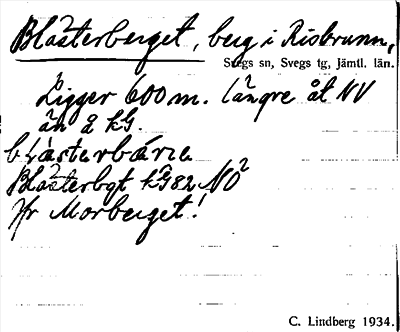 Blåsterberget, berg i Risbrunn,
Svegs sn, Svegs tg, Jämtl. län.
Ligger 600 m. längre åt NV
än å kG.
blåsterbärre
Blåsterbgt kG 82 NO2
Jfr Morberget!
C. Lindberg 1934.